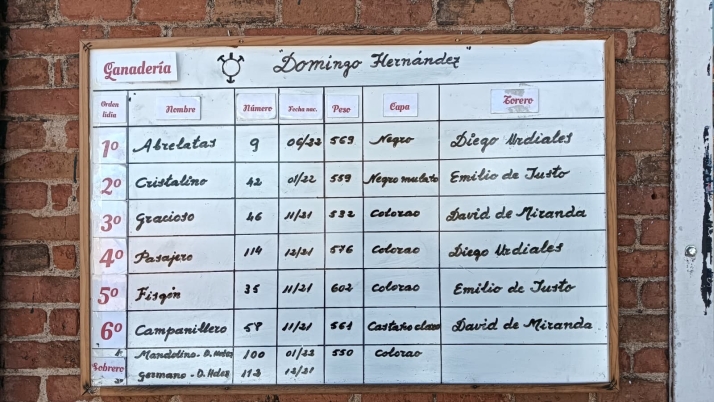 Ganadería "Domingo Hernández"
Orden lidia Nombre Número Fecha nac. Peso Capa Torero
1º Abrelatas 9 06/22 569 Negro Diego Urdiales
2º Cristalino 42 01/22 559 Negro mulato Emilio de Justo
3º Gracioso 46 11/21 532 Colorao David de Miranda
4º Pasajero 114 12/21 576 Colorao Diego Urdiales
5º Fisgón 35 11/21 602 Colorao Emilio de Justo
6º Campanillero 58 11/21 561 Castaño claro David de Miranda
Sobrero Mandolino - D. Hdez 100 01/22 550 Colorao
Germano - D. Hdez 113 12/21